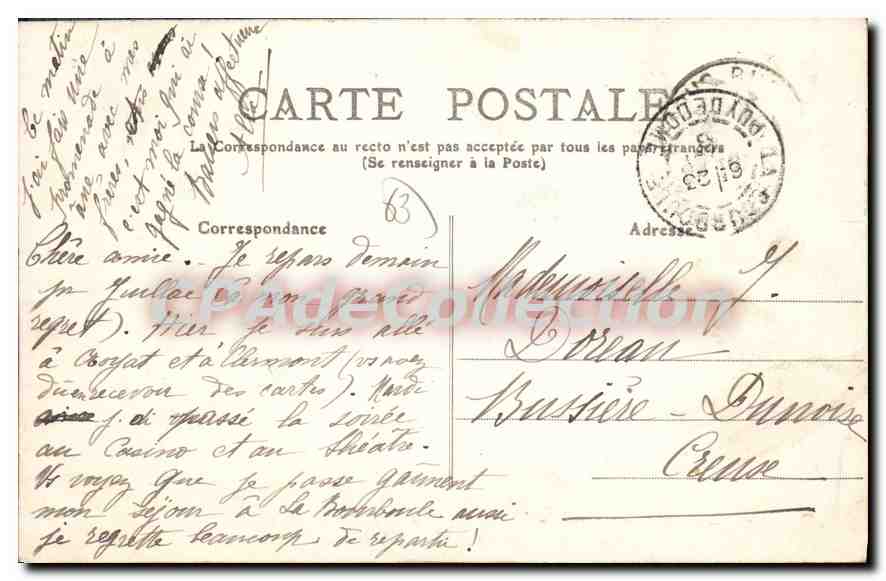 CARTE POSTALE
La Correspondance au recto n'est pas acceptée par tous les pays étrangers
(Se renseigner à la Poste)
Correspondance
Adresse
63
LA BOURBOULE
PUY DE DOME
Chère amie. Je repars demain
pr Juillac (à mon grand
regret). Hier je suis allé
à Royat et à Clermont (vs avez
dû en recevoir des cartes). Mardi
j'ai passé la soirée
au Casino et au théâtre.
Vs voyez que je passe gaiment
mon séjour à La Bourboule aussi
je regrette beaucoup de repartir!
Ce matin
j'ai fais une
promenade à
âne avec mes
frères,
c'est moi qui ai
gagné la course!
Baisers affectueux
Mademoiselle J.
Doreau
Bussière-Dunoise
Creuse
CPA de Collection